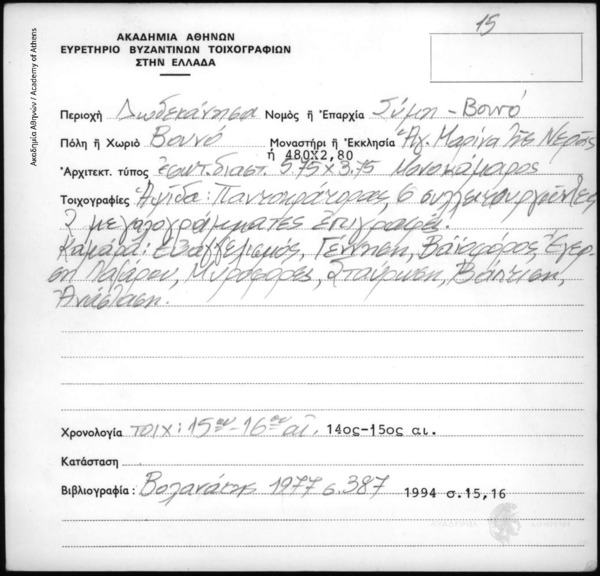 15
ΑΚΑΔΗΜΙΑ ΑΘΗΝΩΝ
ΕΥΡΕΤΗΡΙΟ ΒΥΖΑΝΤΙΝΩΝ ΤΟΙΧΟΓΡΑΦΙΩΝ
ΣΤΗΝ ΕΛΛΑΔΑ
Ακαδημία Αθηνών / Academy of Athens
Περιοχή Δωδεκάνησα Νομός ή Ἐπαρχία Σύμη - Βουνό
Πόλη ή Χωριό Βουνό Μοναστήρι ή Ἐκκλησία Ἁγ. Μαρίνα τῆς
ή 480Χ2,80
Ἀρχιτεκτ. τύπος διαστ. 5.75 x 3.75 Μονοκάμαρος
Τοιχογραφίες Ἁψίδα: Παντοκράτορας, 6 συλλειτουργοῦντες
2 μεγαλογράμματες ἐπιγραφές.
Καμάρα: Εὐαγγελισμός, Γέννηση, Βαϊοφόρος, Ἔγερ-
ση Λαζάρου, Μυροφόρες, Σταύρωση, Βάπτιση,
Ἀνάσταση.
Χρονολογία τοιχ: 15ου-16ου αἰ. 14ος-15ος αι.
Κατάσταση
Βιβλιογραφία: Βολανάκης 1977 σ.387 1994 σ.15,16
ΑΚΑΔΗΜΙΑ ΑΘΗΝΩΝ